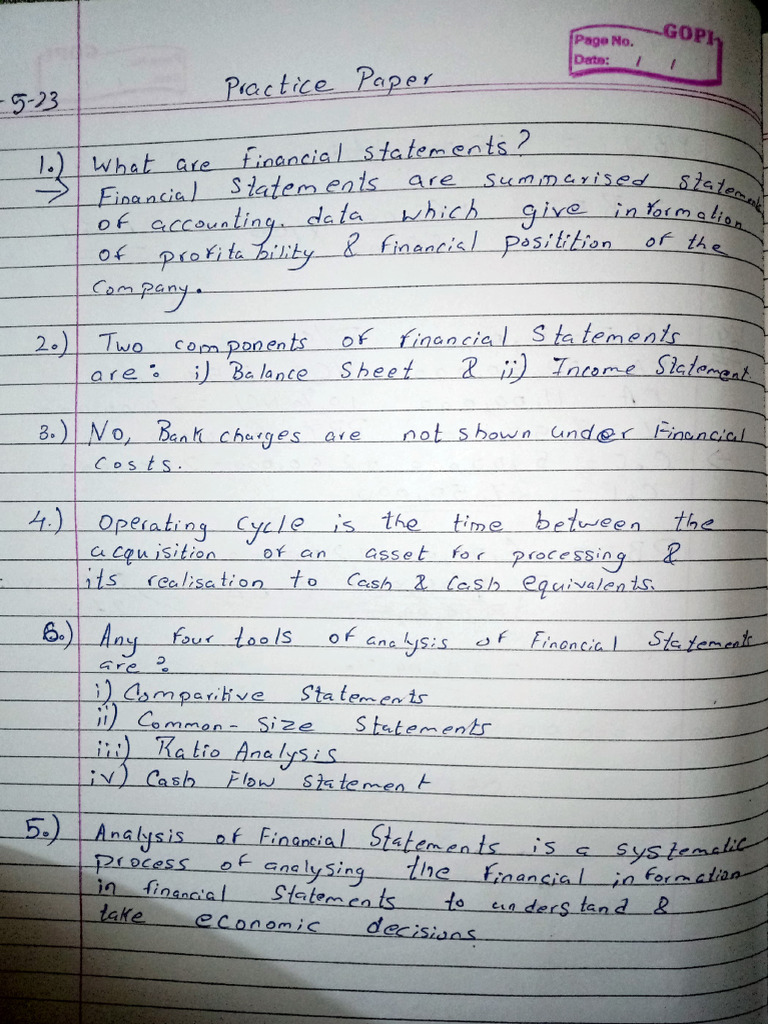 GOPI
Page No.
Date: / /
-5-23
Practice Paper
1.) What are financial statements?
→ Financial Statements are summarised statements
of accounting. data which give information
of profitability & financial positition of the
Company.
2.) Two components of financial Statements
are: i) Balance Sheet & ii) Income Statement.
3.) No, Bank charges are not shown under Financial
Costs.
4.) Operating Cycle is the time between the
acquisition of an asset for processing &
its realisation to Cash & Cash equivalents.
6.) Any four tools of analysis of Financial Statements
are:
i) Comparitive Statements
ii) Common-Size Statements
iii) Ratio Analysis
iv) Cash Flow statement
5.) Analysis of Financial Statements is a systematic
process of analysing the financial information
in financial Statements to understand &
take economic decisions